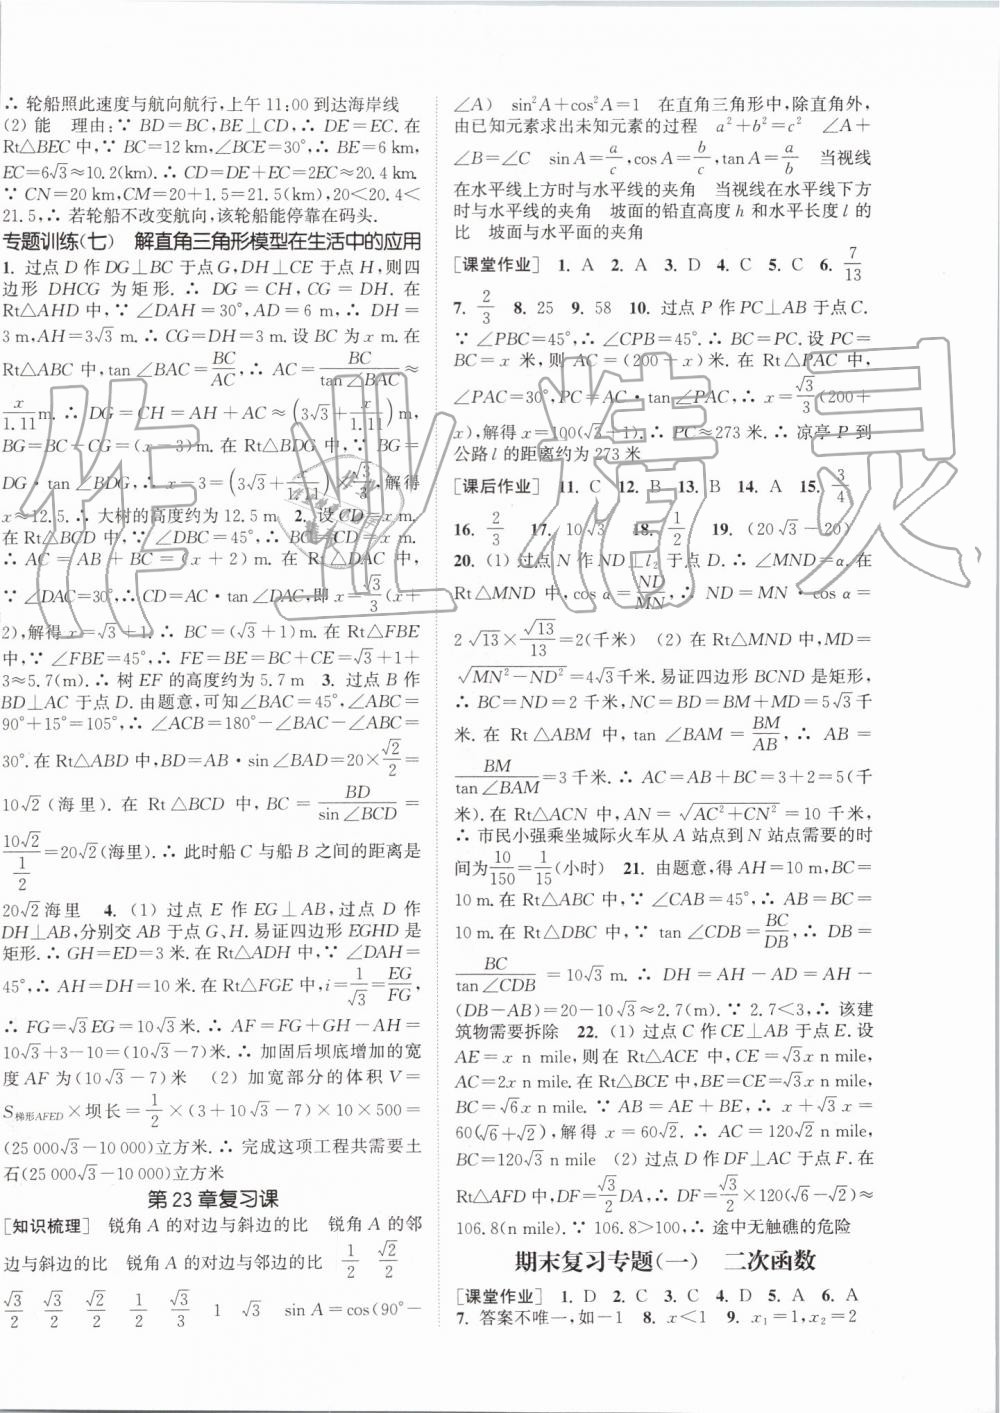 ∴ 轮船照此速度与航向航行,上午 11:00 到达海岸线
(2) 能　理由:∵ BD=BC,BE⊥CD,∴ DE=EC. 在
Rt△BEC 中,∵ BC=12 km,∠BCE=30°,∴ BE=6 km,
EC=6√3≈10.2(km). ∴ CD=DE+EC=2EC≈20.4 km.
∵ CN=20 km,CM=20+1.5=21.5(km),20<20.4<
21.5,∴ 若轮船不改变航向,该轮船能停靠在码头.
专题训练(七)　解直角三角形模型在生活中的应用
1. 过点 D 作 DG⊥BC 于点 G,DH⊥CE 于点 H,则四
边形 DHCG 为矩形. ∴ DG=CH,CG=DH. 在
Rt△AHD 中,∵ ∠DAH=30°,AD=6 m,∴ DH=
3 m,AH=3√3 m. ∴ CG=DH=3 m. 设 BC 为 x m. 在
Rt△ABC 中,tan ∠BAC=BC/AC,∴ AC=BC/tan ∠BAC≈
x/1.11 m. ∴ DG=CH=AH+AC≈(3√3+x/1.11) m,
BG=BC-CG=(x-3)m. 在 Rt△BDG 中,∵ BG=
DG·tan ∠BDG,∴ x-3=(3√3+x/1.11)×√3/3,解得
x≈12.5. ∴ 大树的高度约为 12.5 m　2. 设 CD=x m.
在 Rt△BCD 中,∵ ∠DBC=45°,∴ BC=CD=x m.
∴ AC=AB+BC=(x+2)m. 在 Rt△DAC 中,
∵ ∠DAC=30°,∴ CD=AC·tan ∠DAC,即 x=√3/3(x+
2),解得 x=√3+1. ∴ BC=(√3+1)m. 在 Rt△FBE
中,∵ ∠FBE=45°,∴ FE=BE=BC+CE=√3+1+
3≈5.7(m). ∴ 树 EF 的高度约为 5.7 m　3. 过点 B 作
BD⊥AC 于点 D. 由题意,可知∠BAC=45°,∠ABC=
90°+15°=105°,∴ ∠ACB=180°-∠BAC-∠ABC=
30°. 在 Rt△ABD 中,BD=AB·sin ∠BAD=20×√2/2=
10√2 (海里). 在 Rt△BCD 中,BC=BD/sin ∠BCD=
10√2/(1/2)=20√2(海里). ∴ 此时船 C 与船 B 之间的距离是
20√2海里　4. (1) 过点 E 作 EG⊥AB,过点 D 作
DH⊥AB,分别交 AB 于点 G、H. 易证四边形 EGHD 是
矩形. ∴ GH=ED=3 米. 在 Rt△ADH 中,∵ ∠DAH=
45°,∴ AH=DH=10 米. 在 Rt△FGE 中,i=1/√3=EG/FG,
∴ FG=√3EG=10√3米. ∴ AF=FG+GH-AH=
10√3+3-10=(10√3-7)米. ∴ 加固后坝底增加的宽
度 AF 为(10√3-7)米　(2) 加宽部分的体积 V=
S梯形AFED×坝长=1/2×(3+10√3-7)×10×500=
(25 000√3-10 000)立方米. ∴ 完成这项工程共需要土
石(25 000√3-10 000)立方米
第 23 章复习课
[知识梳理]　锐角 A 的对边与斜边的比　锐角 A 的邻
边与斜边的比　锐角 A 的对边与邻边的比　1/2　√2/2
√3/2　√3/2　√2/2　1/2　√3/3　1　√3　sin A=cos(90°-
∠A)　sin²A+cos²A=1　在直角三角形中,除直角外,
由已知元素求出未知元素的过程　a²+b²=c²　∠A+
∠B=∠C　sin A=a/c,cos A=b/c,tan A=a/b　当视线
在水平线上方时与水平线的夹角　当视线在水平线下方
时与水平线的夹角　坡面的铅直高度 h 和水平长度 l 的
比　坡面与水平面的夹角
[课堂作业]　1. A　2. A　3. D　4. C　5. C　6. 7/13
7. 2/3　8. 25　9. 58　10. 过点 P 作 PC⊥AB 于点 C.
∵ ∠PBC=45°,∴ ∠CPB=45°. ∴ BC=PC. 设 PC=
BC=x 米,则 AC=(200+x)米. 在 Rt△PAC 中,
∠PAC=30°,PC=AC·tan ∠PAC,∴ x=√3/3(200+
x),解得 x=100(√3+1). ∴ PC≈273 米. ∴ 凉亭 P 到
公路 l 的距离约为 273 米
[课后作业]　11. C　12. B　13. B　14. A　15. 3/4
16. 2/3　17. 10√3　18. 1/2　19. (20√3-20)
20. (1) 过点 N 作 ND⊥l₂ 于点 D. ∴ ∠MND=α. 在
Rt△MND 中,cos α=ND/MN,∴ ND=MN·cos α=
2√13×√13/13=2(千米)　(2) 在 Rt△MND 中,MD=
√(MN²-ND²)=4√3千米. 易证四边形 BCND 是矩形,
∴ BC=ND=2 千米,NC=BD=BM+MD=5√3千
米. 在 Rt△ABM 中,tan ∠BAM=BM/AB,∴ AB=
BM/tan ∠BAM=3千米. ∴ AC=AB+BC=3+2=5(千
米). 在 Rt△ACN 中,AN=√(AC²+CN²)=10 千米,
∴ 市民小强乘坐城际火车从 A 站点到 N 站点需要的时
间为10/150=1/15(小时)　21. 由题意,得 AH=10 m,BC=
10 m. 在 Rt△ABC 中,∵ ∠CAB=45°,∴ AB=BC=
10 m. 在 Rt△DBC 中,∵ tan ∠CDB=BC/DB,∴ DB=
BC/tan ∠CDB=10√3 m. ∴ DH=AH-AD=AH-
(DB-AB)=20-10√3≈2.7(m). ∵ 2.7<3,∴ 该建
筑物需要拆除　22. (1) 过点 C 作 CE⊥AB 于点 E. 设
AE=x n mile,则在 Rt△ACE 中,CE=√3x n mile,
AC=2x n mile. 在 Rt△BCE 中,BE=CE=√3x n mile,
BC=√6x n mile. ∵ AB=AE+BE,∴ x+√3x=
60(√6+√2),解得 x=60√2. ∴ AC=120√2 n mile,
BC=120√3 n mile　(2) 过点 D 作 DF⊥AC 于点 F. 在
Rt△AFD 中,DF=√3/2DA. ∴ DF=√3/2×120(√6-√2)≈
106.8(n mile). ∵ 106.8>100,∴ 途中无触礁的危险
期末复习专题(一)　二次函数
[课堂作业]　1. D　2. C　3. C　4. D　5. A　6. A
7. 答案不唯一,如-1　8. x<1　9. x₁=1,x₂=2
作业精灵